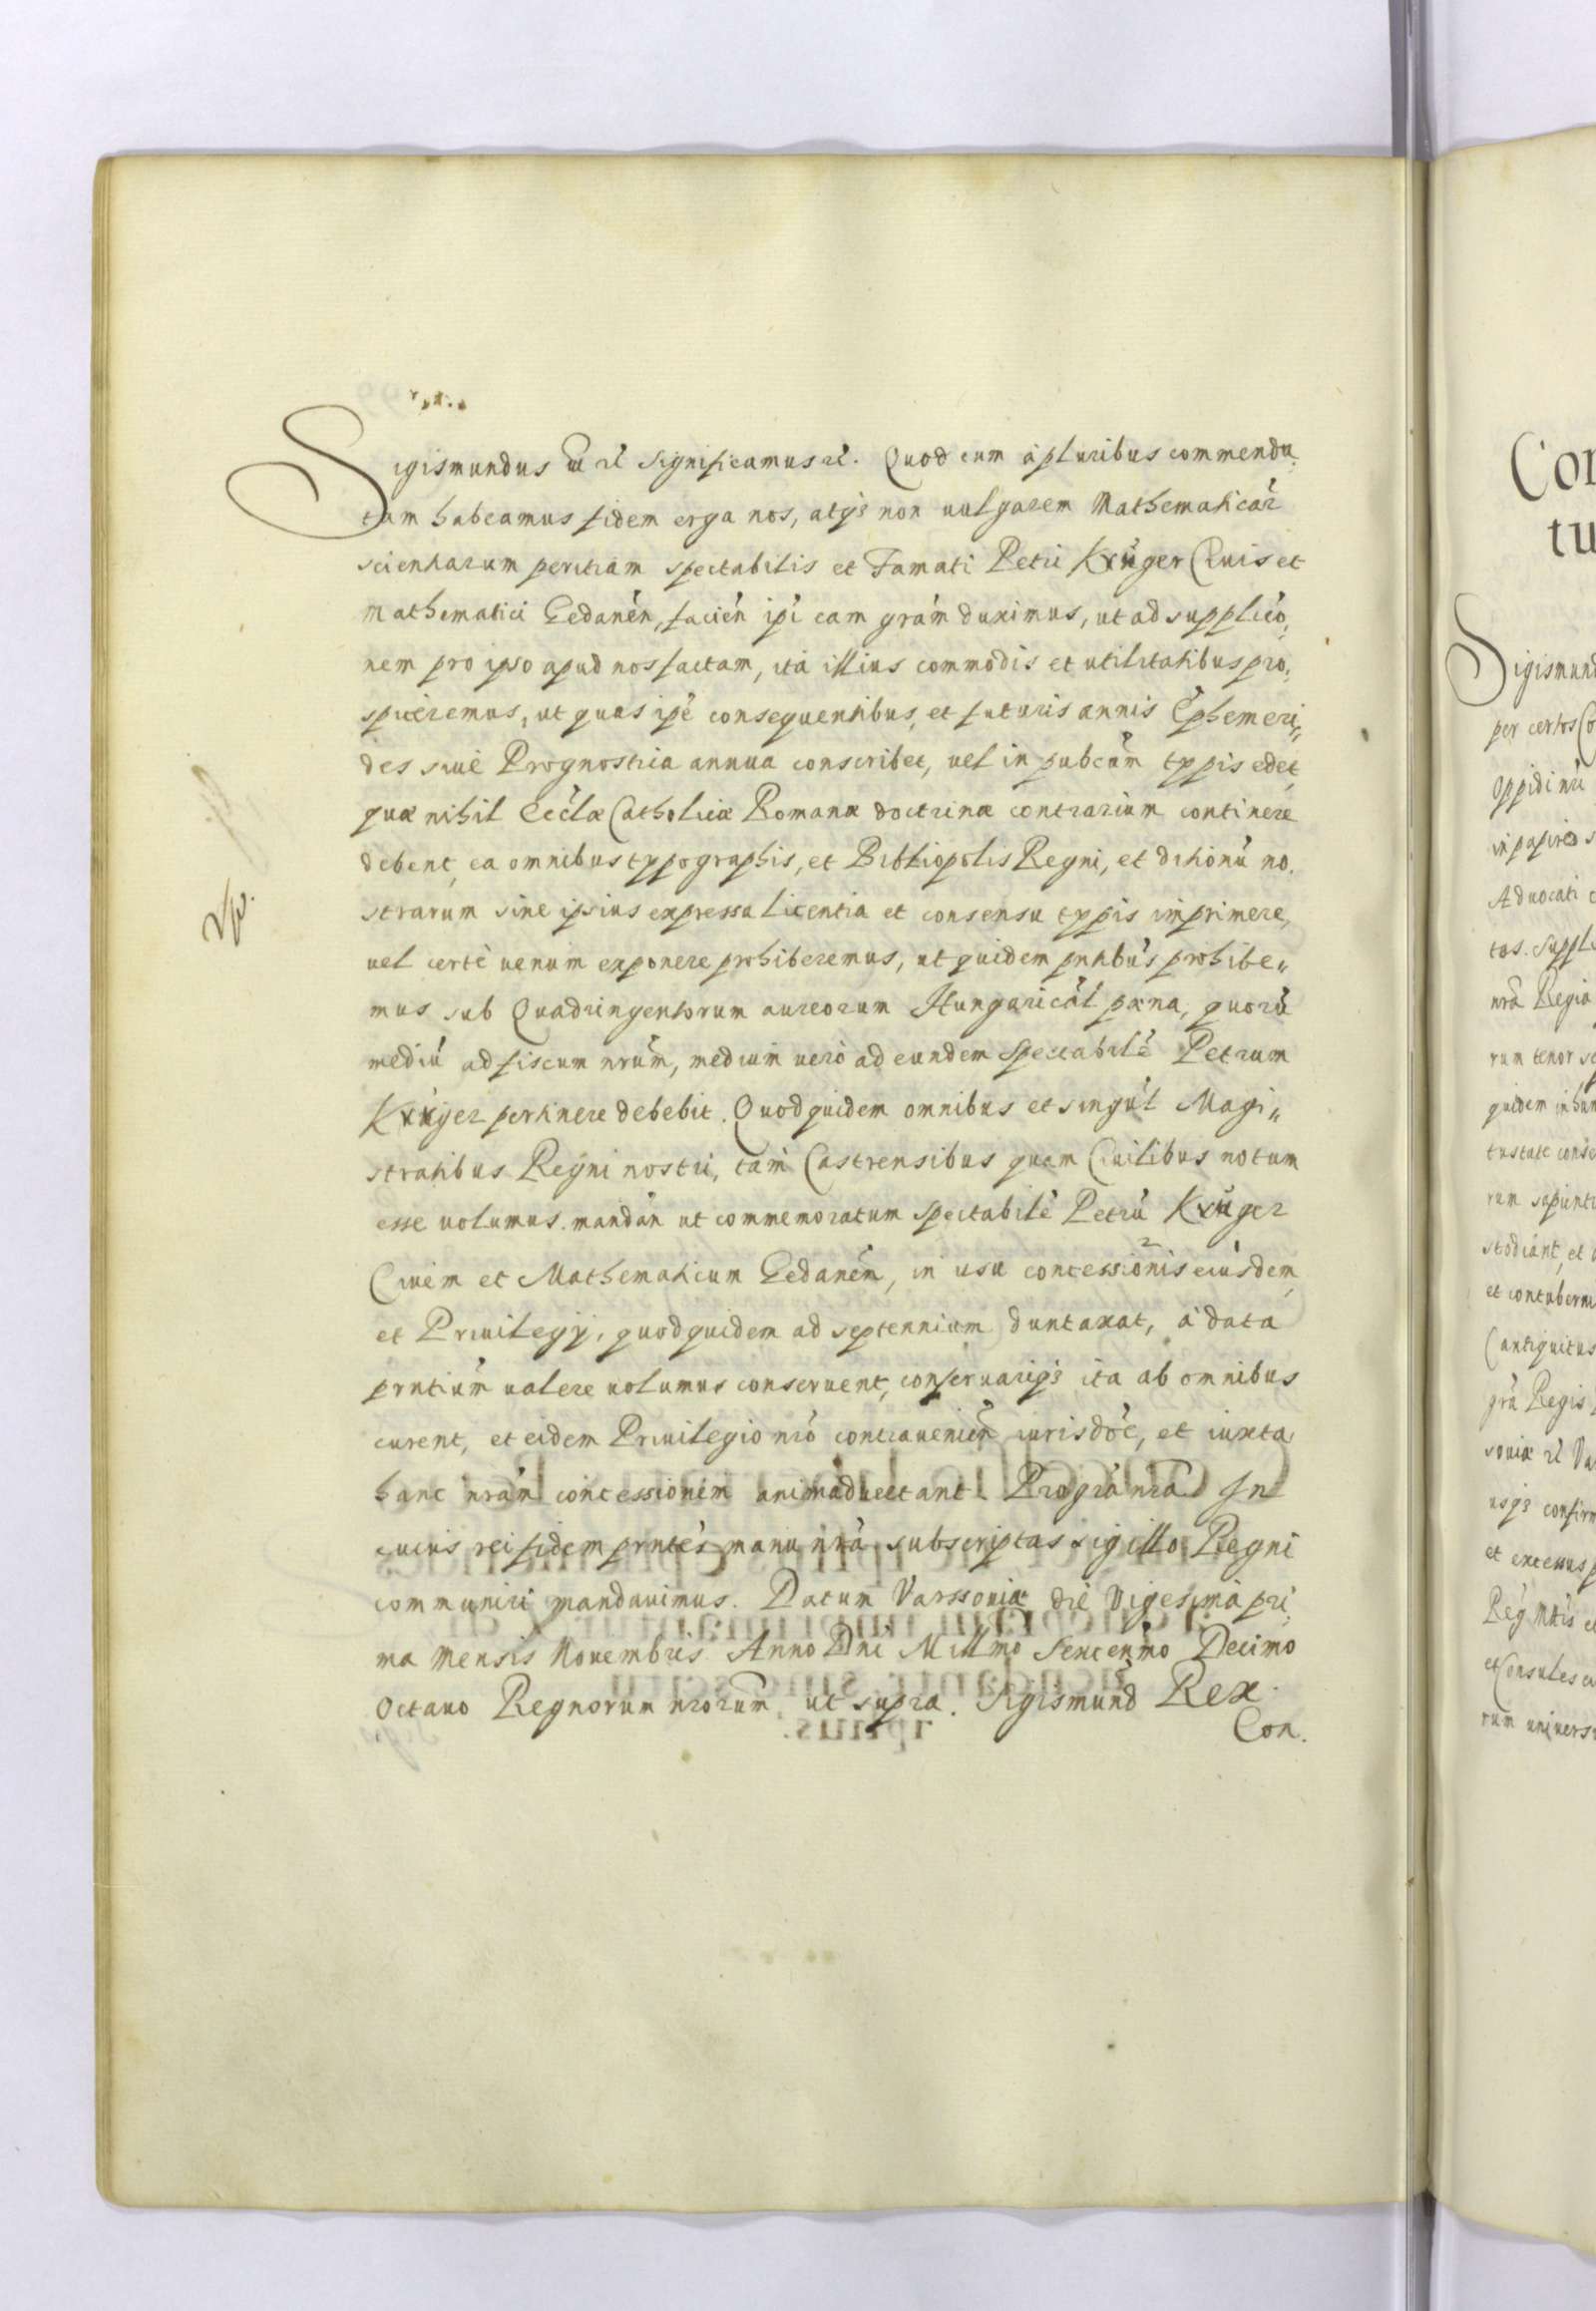 Sigismundus etc significamus etc. Quod cum à pluribus commenda,
tam habeamus fidem erga nos, atq3 non uulgarem Mathematicar
scientiarum peritiam spectabilis et Famati Petri Krüger Ciuis et
Mathematici Gedanen̄, facien̄ ip̄i eam grām duximus, ut ad supplicō,
nem pro ipso apud nos factam, ità illius commodis et utilitatibus pro,
spiceremus, ut quas ip̄e consequentibus, et futuris annis Ephemeri,,
des siue Prognostica annua conscribet, uel in pubcūm typis edet,
quæ nihil Ecclæ Catholicæ Romanæ doctrinæ contrarium continere
debent, ea omnibus typographis, et Bibliopolis Regni, et ditionū no,
strarum sine ipsius expressa licentia et consensu typis imprimere,
uel certè uenum exponere prohiberemus, ut quidem pntibūs prohibe,,
mus sub Quadringentorum aureorum Hungaricāl pæna, quorū
mediū ad fiscum nrūm, medium uerò ad eundem Spectabilē Petrum
Krüger pertinere debebit. Quod quidem omnibus et singūl Magi,,
stratibus Regni nostri, tam Castrensibus quam Ciuilibus notum
esse uolumus. mandān ut commemoratum spectabilē Petrū Krüger
Ciuem et Mathematicum Gedanēn, in usu concessionis eiusdem,
et Priuilegÿ, quod quidem ad septennium duntaxat, à data
prntiūm ualere uolumus conseruent, conseruariq3 ita ab omnibus
curent, et eidem Priuilegio nrō contrauenien̄ iurisdōc, et iuxta
hanc nrām concessionem animaduertant. Pro grā nrā In
cuius rei fidem prntēs manu nrā subscriptas sigillo Regni
communiri mandauimus. Datum Varssouiæ die Vigesima pri,
ma Mensis Nouembris Anno Dnī Millmo Sexcenmo Decimo
octauo Regnorum nrorūm ut supra. Sigismund Rex.
Con.
Cor
tu
Sigismund
per certos Co
Oppidi nri
in papireo s
Aduocati c
tas. Suppli
nrā Regia
rum tenor se
quidem in hum
tustate conse
rum sapienti
stodiant, et
et contuberni
Cantiquitus
grā Regis
souiæ etc Va
usq3 confirm
et extensus p
Reg Mtis
et Consules
rum univers